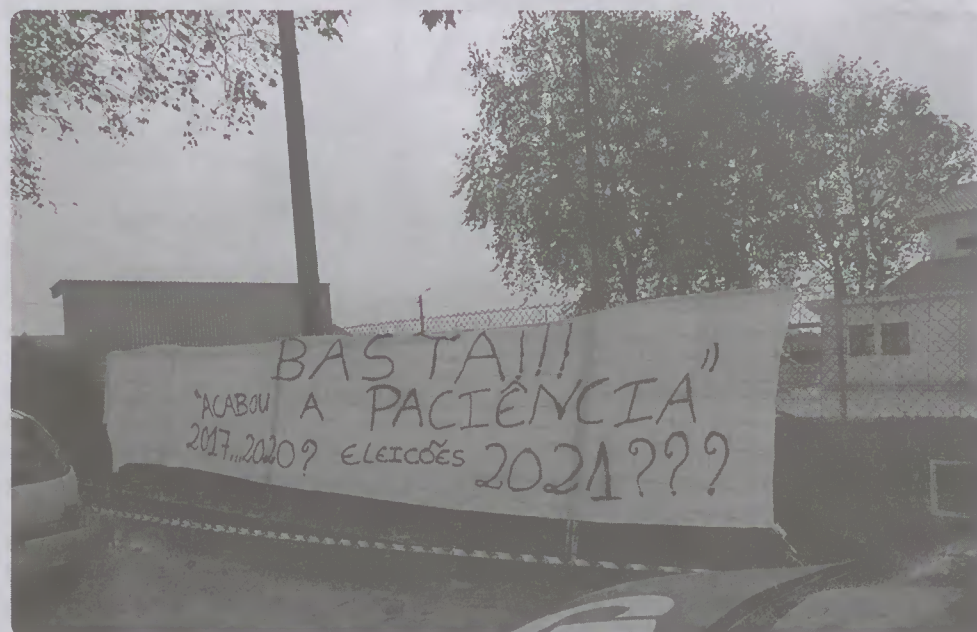 BASTA!!!
"ACABOU A PACIÊNCIA"
2017...2020? ELEICÕES 2021???